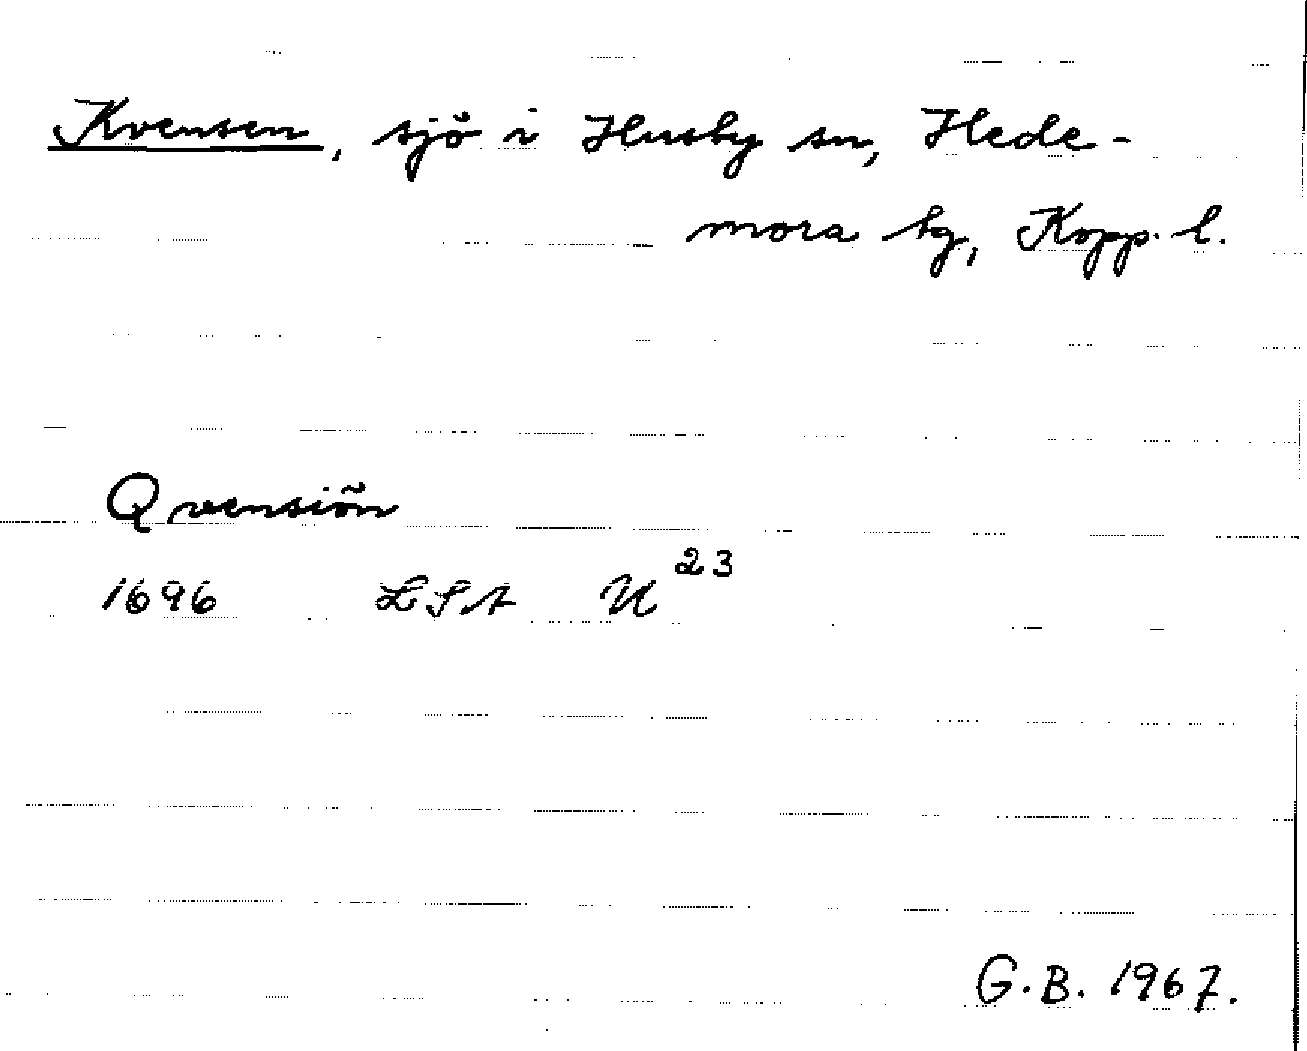 Kvensen, sjö i Husby sn, Hede-
mora tg, Kopp. l.
Qvensiön
1696 LSA U 23
G.B. 1967.